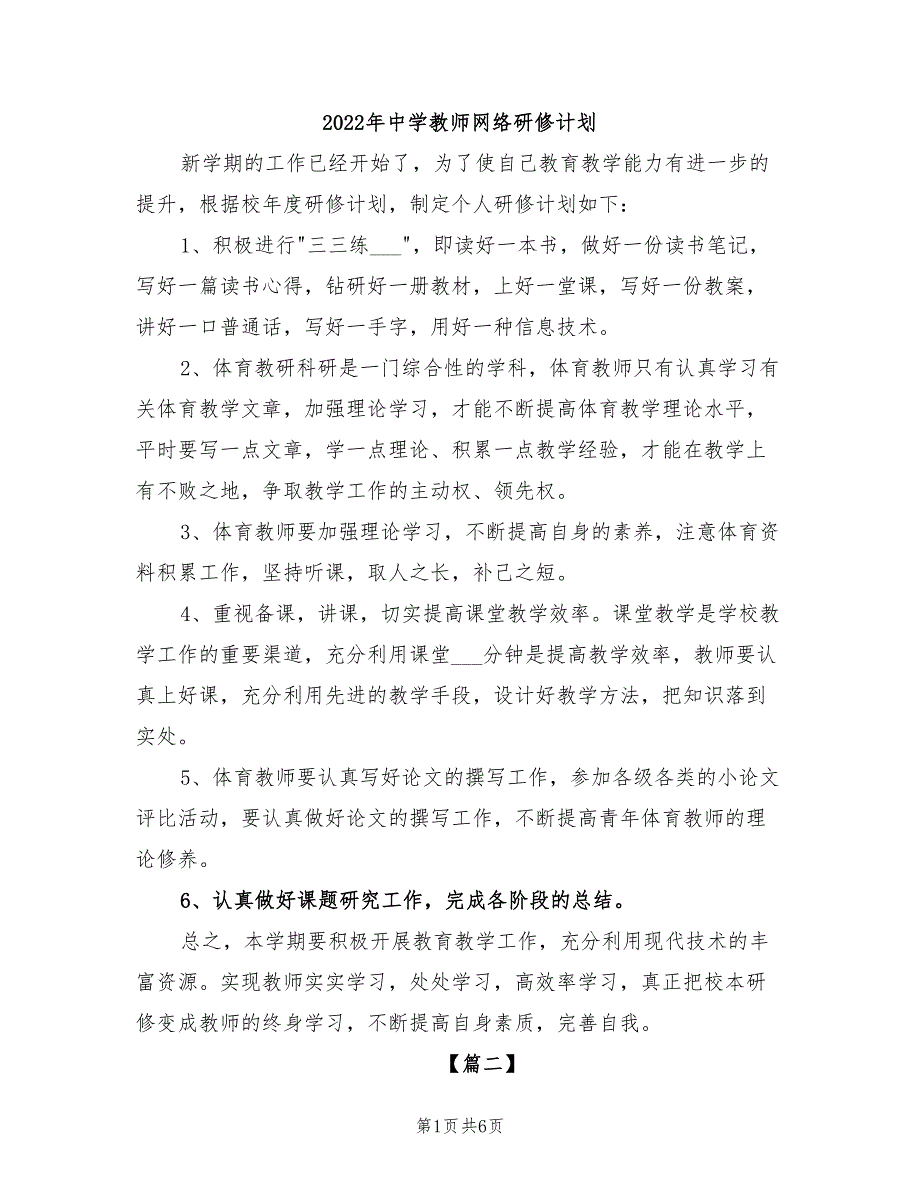 2022年中学教师网络研修计划
新学期的工作已经开始了，为了使自己教育教学能力有进一步的
提升，根据校年度研修计划，制定个人研修计划如下：
1、积极进行"三三练___"，即读好一本书，做好一份读书笔记，
写好一篇读书心得，钻研好一册教材，上好一堂课，写好一份教案，
讲好一口普通话，写好一手字，用好一种信息技术。
2、体育教研科研是一门综合性的学科，体育教师只有认真学习有
关体育教学文章，加强理论学习，才能不断提高体育教学理论水平，
平时要写一点文章，学一点理论、积累一点教学经验，才能在教学上
有不败之地，争取教学工作的主动权、领先权。
3、体育教师要加强理论学习，不断提高自身的素养，注意体育资
料积累工作，坚持听课，取人之长，补己之短。
4、重视备课，讲课，切实提高课堂教学效率。课堂教学是学校教
学工作的重要渠道，充分利用课堂___分钟是提高教学效率，教师要认
真上好课，充分利用先进的教学手段，设计好教学方法，把知识落到
实处。
5、体育教师要认真写好论文的撰写工作，参加各级各类的小论文
评比活动，要认真做好论文的撰写工作，不断提高青年体育教师的理
论修养。
6、认真做好课题研究工作，完成各阶段的总结。
总之，本学期要积极开展教育教学工作，充分利用现代技术的丰
富资源。实现教师实实学习，处处学习，高效率学习，真正把校本研
修变成教师的终身学习，不断提高自身素质，完善自我。
【篇二】
第1页共6页